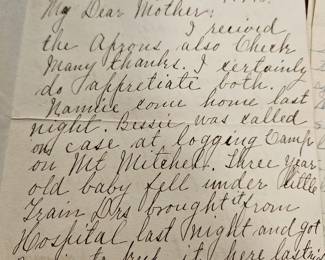 My Dear Mother;
I recived
the Aprons, also Check
Many thanks. I certainly
do appretiate both.
Nannie come home last
night. Bessie was called
on case at logging Camp
on Mt Mitchell. Three Year
old baby fell under little
Train Drs brought it from
Hospital last Night and got
it here last